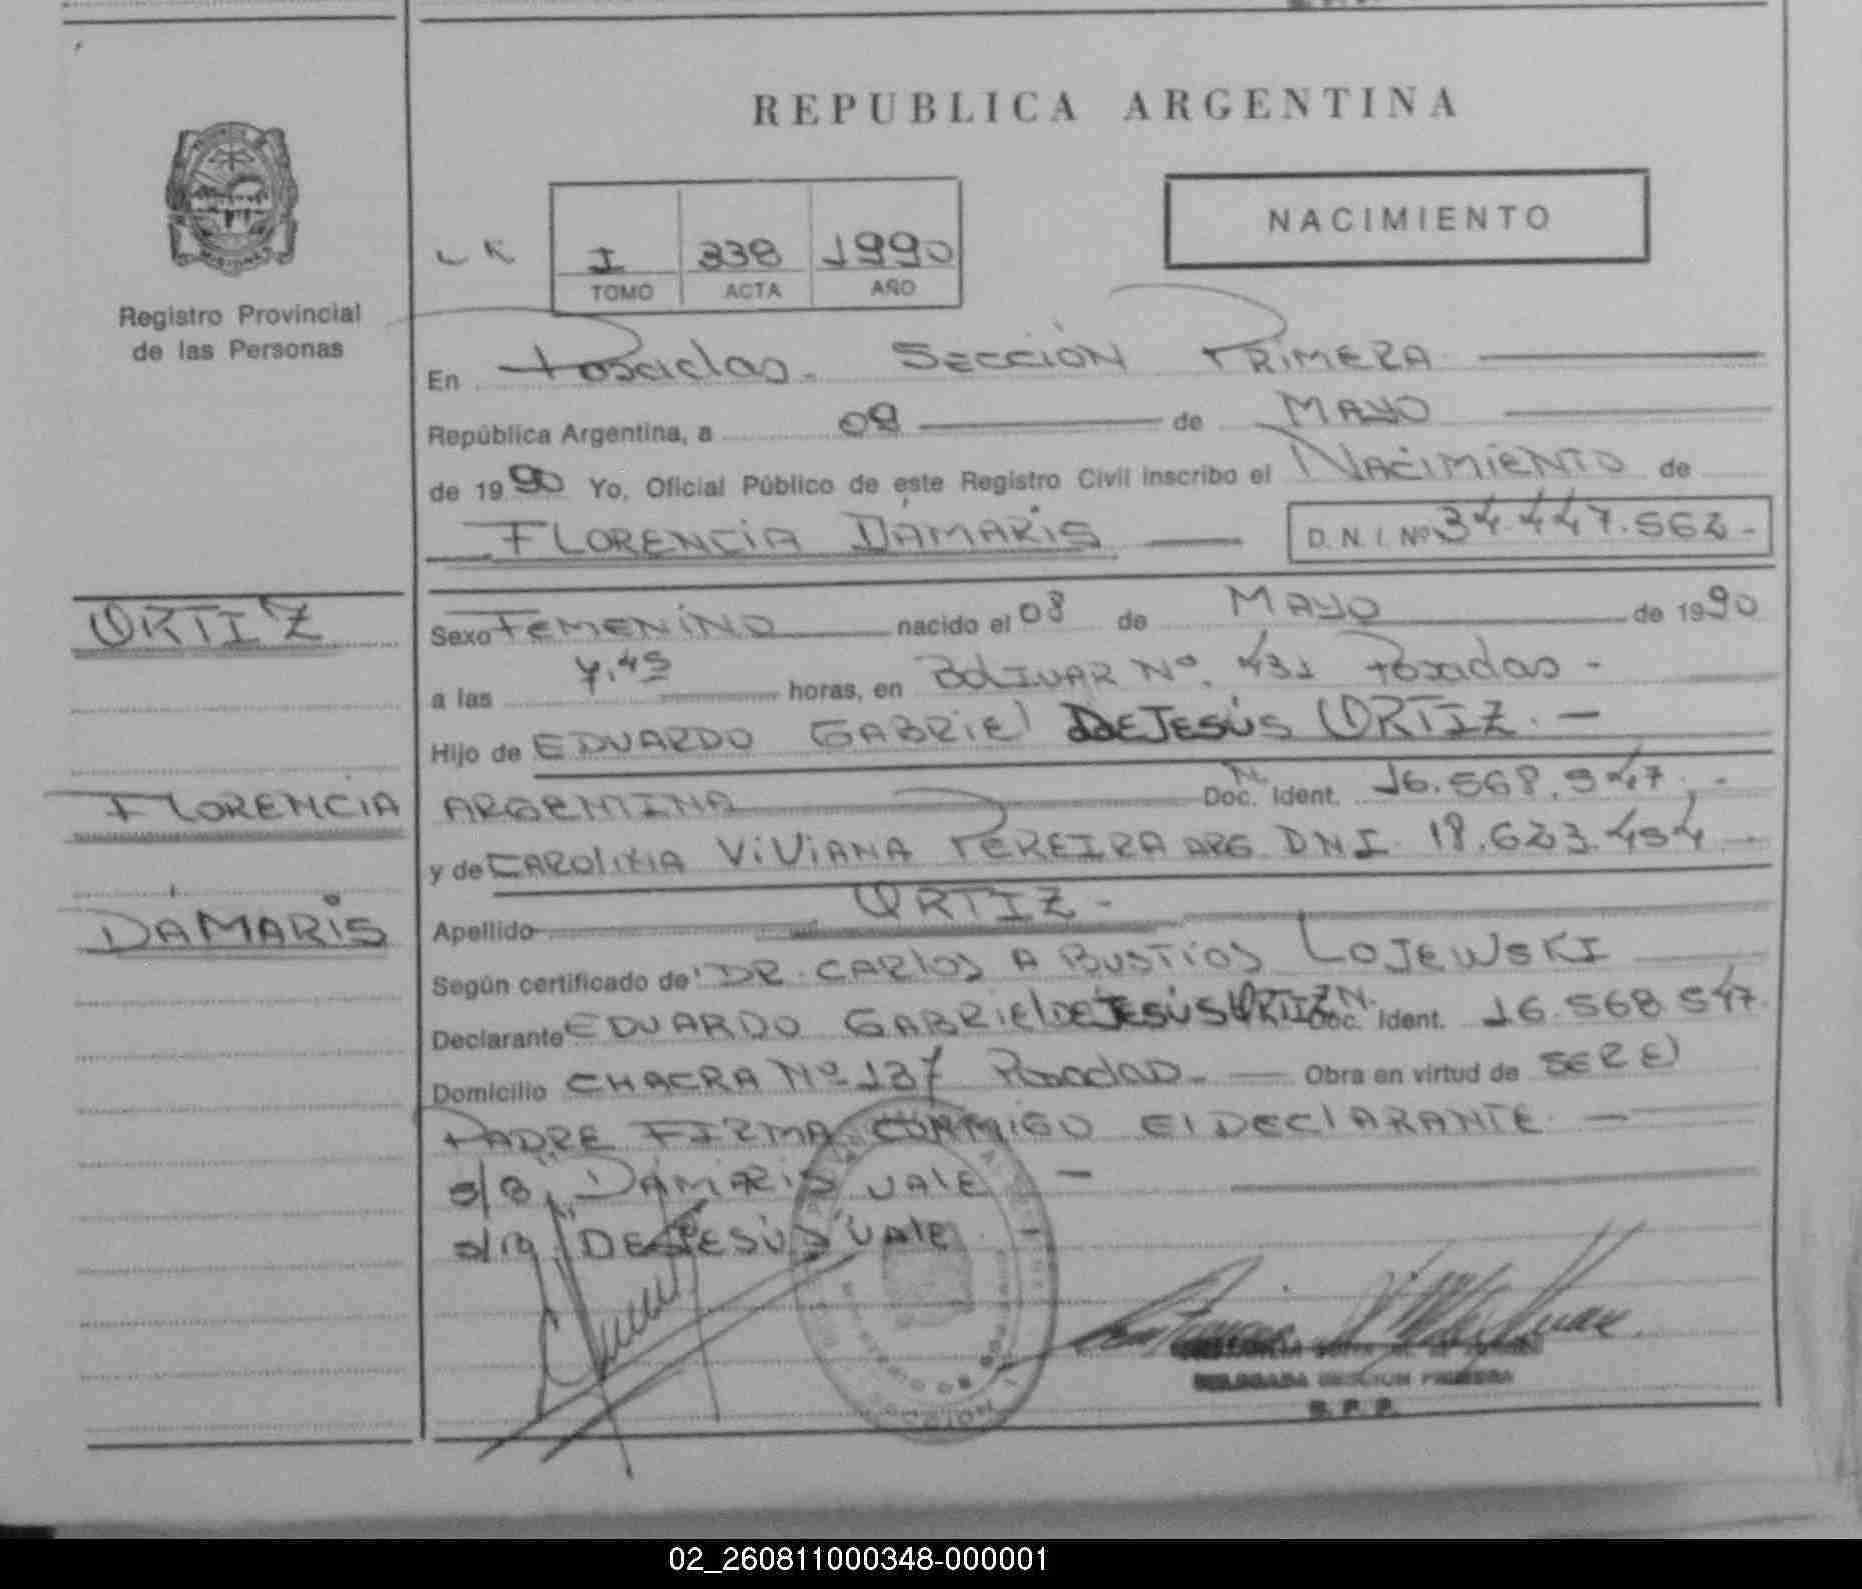 REPUBLICA ARGENTINA
NACIMIENTO
I 338 1990
TOMO ACTA AÑO
Registro Provincial
de las Personas
En Posadas. SECCION PRIMERA
República Argentina, a 08 de MAYO
de 1990 Yo, Oficial Público de este Registro Civil inscribo el NACIMIENTO de
FLORENCIA DAMARIS D.N.I. Nº 34.447.562.-
ORTIZ
Sexo FEMENINO nacido el 08 de MAYO de 1990
a las 7,45 horas, en BOLIVAR Nº. 431 Posadas -
Hijo de EDUARDO GABRIEL DE JESÚS ORTIZ. -
FLORENCIA
ARGENTINA Doc. N. Ident. 16.568.547. -
y de CAROLINA VIVIANA PEREIRA ARG. DNI. 18.623.454 -
DAMARIS
Apellido ORTIZ -
Según certificado de DR. CARLOS A BUSTIOS LOJEWSKI
Declarante EDUARDO GABRIEL DE JESÚS ORTIZ Doc. N. Ident. 16.568.547.
Domicilio CHACRA Nº 137 Posadas. - Obra en virtud de SER EL
PADRE FIRMA CONMIGO EL DECLARANTE. -
s/r "DAMARIS VALE -
"DE JESÚS" VALE
DELEGADA SECCION PRIMERA
R. P. P.
02_260811000348-000001